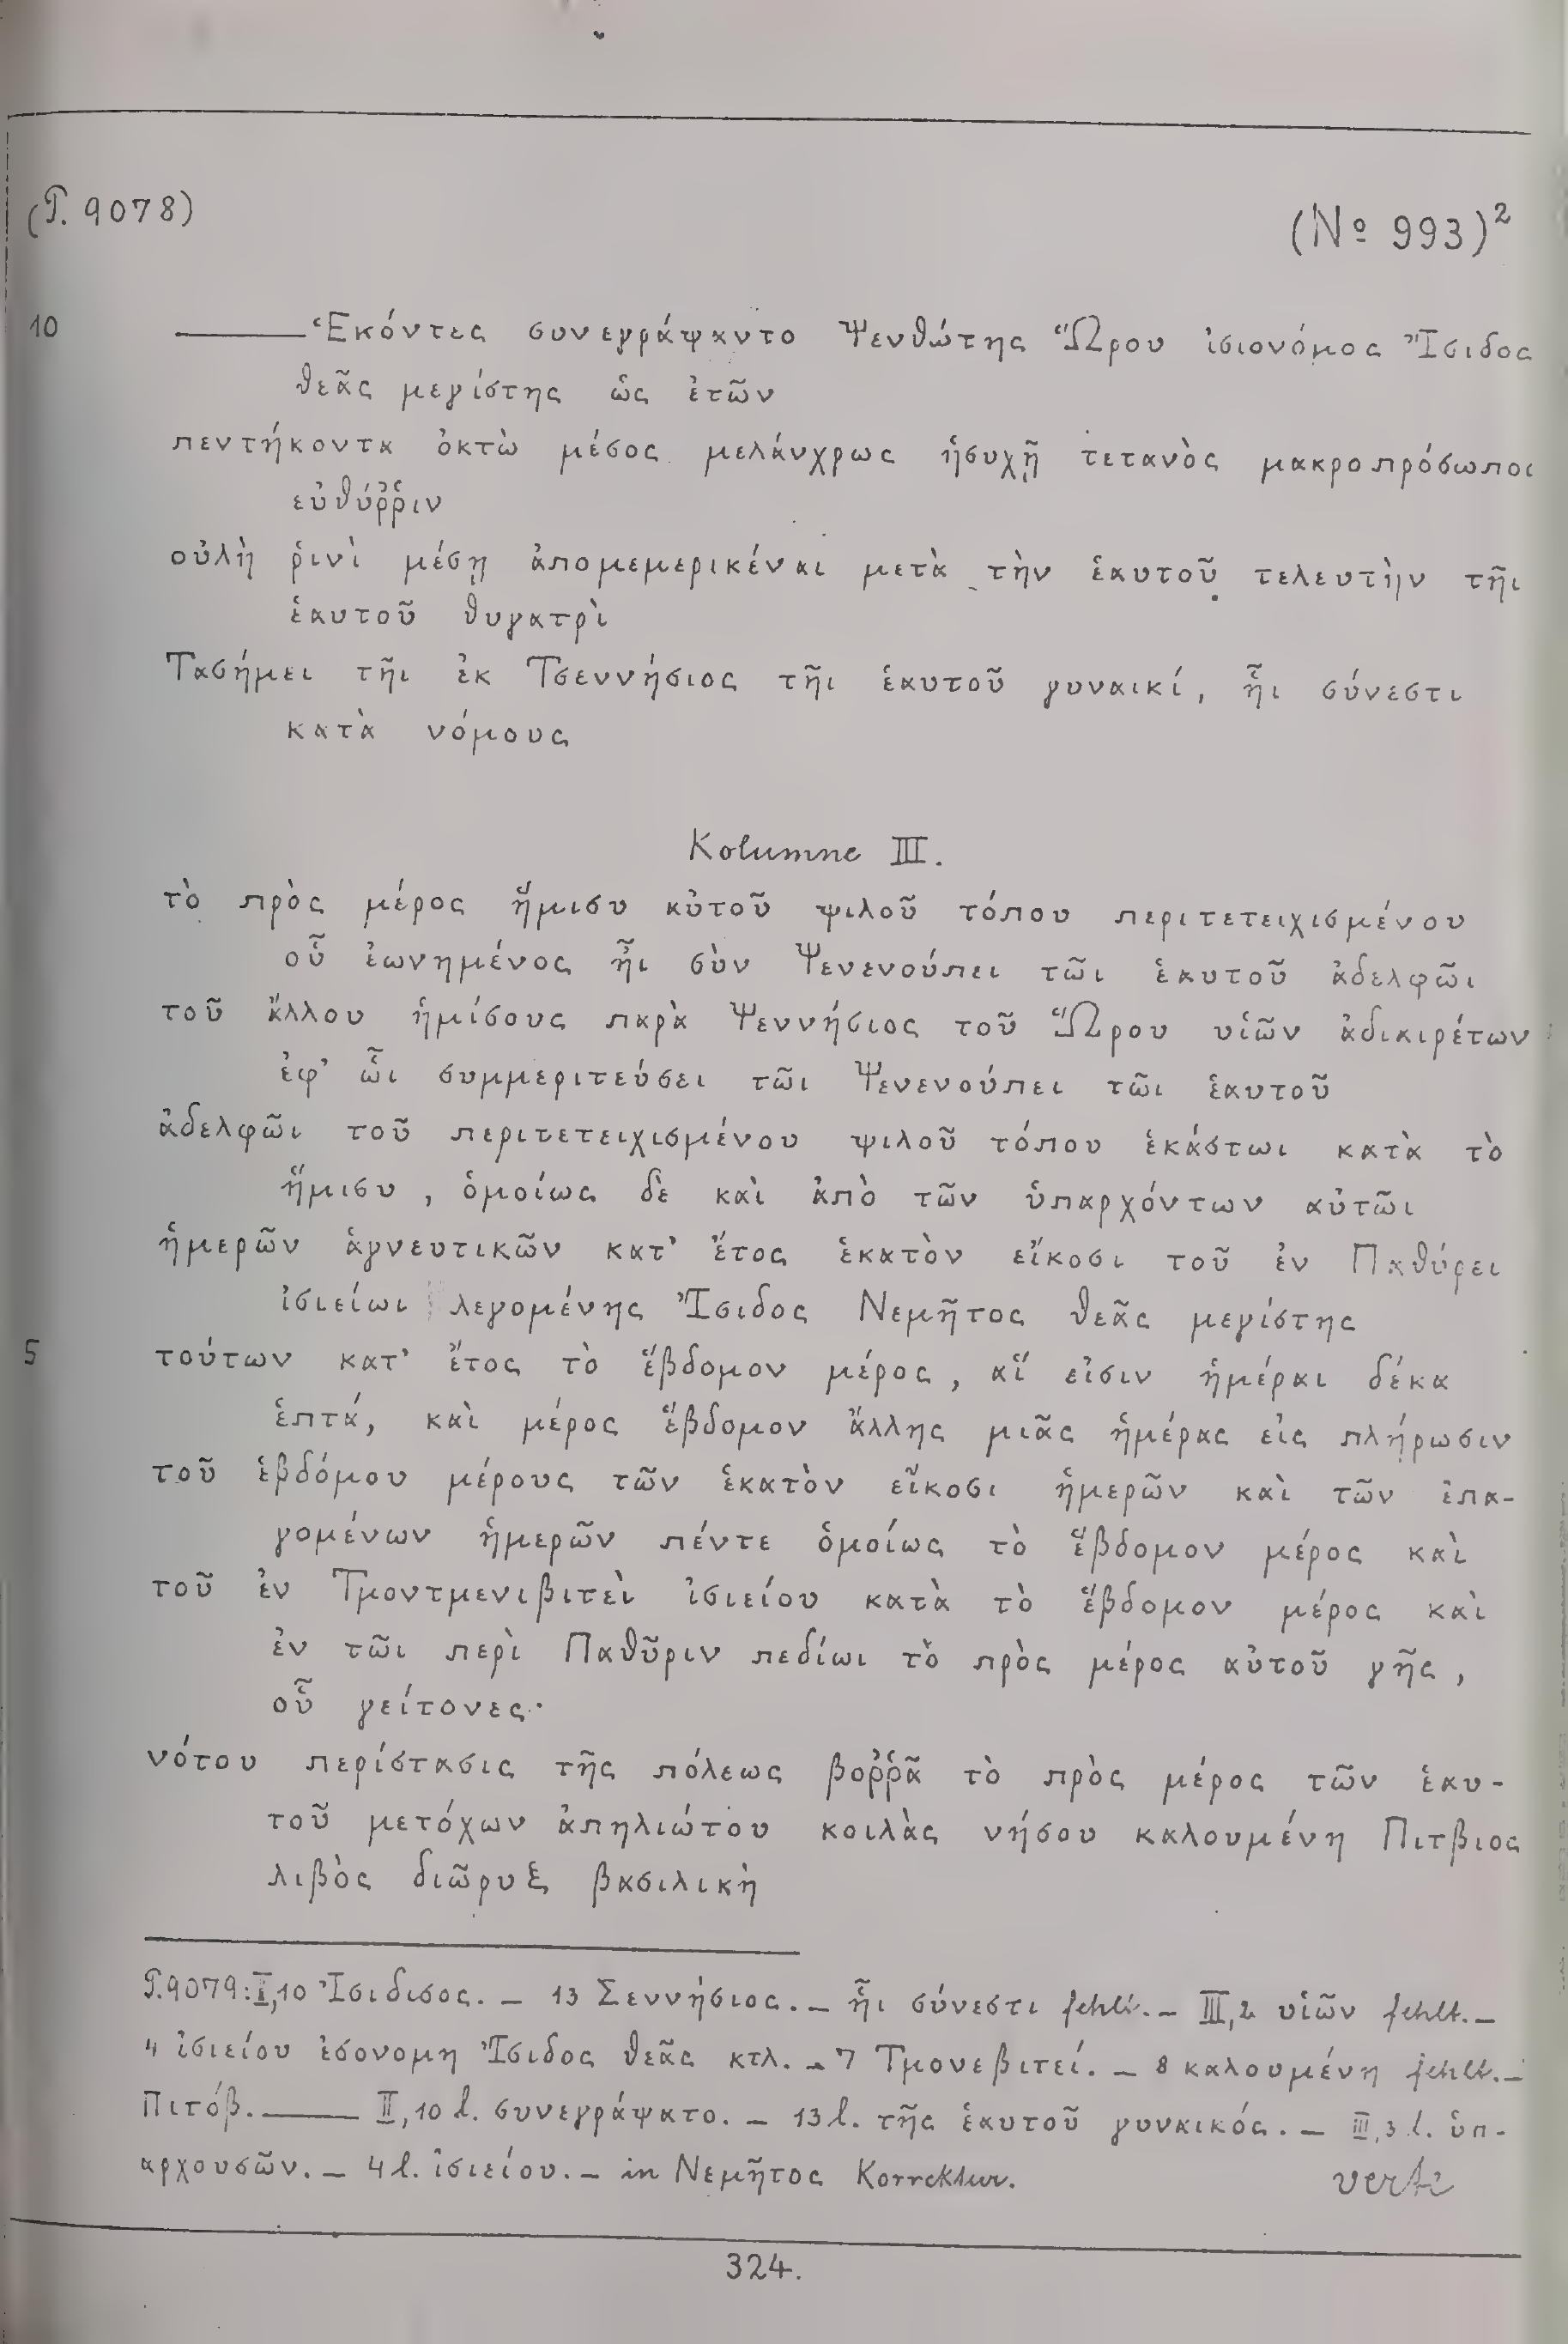 (P. 9078) (Nº 993)²
10 ———Ἑκόντες συνεγράψαντο Ψενθώτης Ὥρου ἰσιονόμος Ἴσιδος
θεᾶς μεγίστης ὡς ἐτῶν
πεντήκοντα ὀκτὼ μέσος μελάνχρως ἡσυχῆ τετανὸς μακροπρόσωπος
εὐθύῤῥιν
οὐλὴ ῥινὶ μέσῃ ἀπομεμερικέναι μετὰ τὴν ἑαυτοῦ τελευτὴν τῆι
ἑαυτοῦ θυγατρὶ
Τασήμει τῆι ἐκ Τσεννήσιος τῆι ἑαυτοῦ γυναικί, ἧι σύνεστι
κατὰ νόμους
Kolumne III.
τὸ πρὸς μέρος ἥμισυ αὐτοῦ ψιλοῦ τόπου περιτετειχισμένου
οὗ ἐωνημένος ἦι σὺν Ψενενούπει τῶι ἑαυτοῦ ἀδελφῶι
τοῦ ἄλλου ἡμίσους παρὰ Ψεννήσιος τοῦ Ὥρου υἱῶν ἀδιαιρέτων
ἐφ' ὧι συμμεριτεύσει τῶι Ψενενούπει τῶι ἑαυτοῦ
ἀδελφῶι τοῦ περιτετειχισμένου ψιλοῦ τόπου ἑκάστωι κατὰ τὸ
ἥμισυ, ὁμοίως δὲ καὶ ἀπὸ τῶν ὑπαρχόντων αὐτῶι
ἡμερῶν ἁγνευτικῶν κατ' ἔτος ἑκατὸν εἴκοσι τοῦ ἐν Παθύρει
ἰσιείωι λεγομένης Ἴσιδος Νεμῆτος θεᾶς μεγίστης
5 τούτων κατ' ἔτος τὸ ἕβδομον μέρος, αἵ εἰσιν ἡμέραι δέκα
ἑπτά, καὶ μέρος ἕβδομον ἄλλης μιᾶς ἡμέρας εἰς πλήρωσιν
τοῦ ἑβδόμου μέρους τῶν ἑκατὸν εἴκοσι ἡμερῶν καὶ τῶν ἐπα-
γομένων ἡμερῶν πέντε ὁμοίως τὸ ἕβδομον μέρος καὶ
τοῦ ἐν Τμοντμενιβιτεὶ ἰσιείου κατὰ τὸ ἕβδομον μέρος καὶ
ἐν τῶι περὶ Παθῦριν πεδίωι τὸ πρὸς μέρος αὐτοῦ γῆς,
οὗ γείτονες·
νότου περίστασις τῆς πόλεως βοῤῥᾶ τὸ πρὸς μέρος τῶν ἑαυ-
τοῦ μετόχων ἀπηλιώτου κοιλὰς νήσου καλουμένη Πιτβιος
λιβὸς διῶρυξ βασιλικὴ
P.9079: I,10 Ἰσιδισος. – 13 Σεννήσιος. – ἧι σύνεστι fehlt. – III,2 υἱῶν fehlt. –
4 ἰσιείου ἐσονομη Ἴσιδος θεᾶς κτλ. – 7 Τμονεβιτεί. – 8 καλουμένη fehlt. –
Πιτόβ. ——— II,10 l. συνεγράψατο. – 13 l. τῆς ἑαυτοῦ γυναικός. – III,3 l. ὑπ-
αρχουσῶν. – 4 l. ἰσιείου. – in Νεμῆτος Korrektur. verte
324.